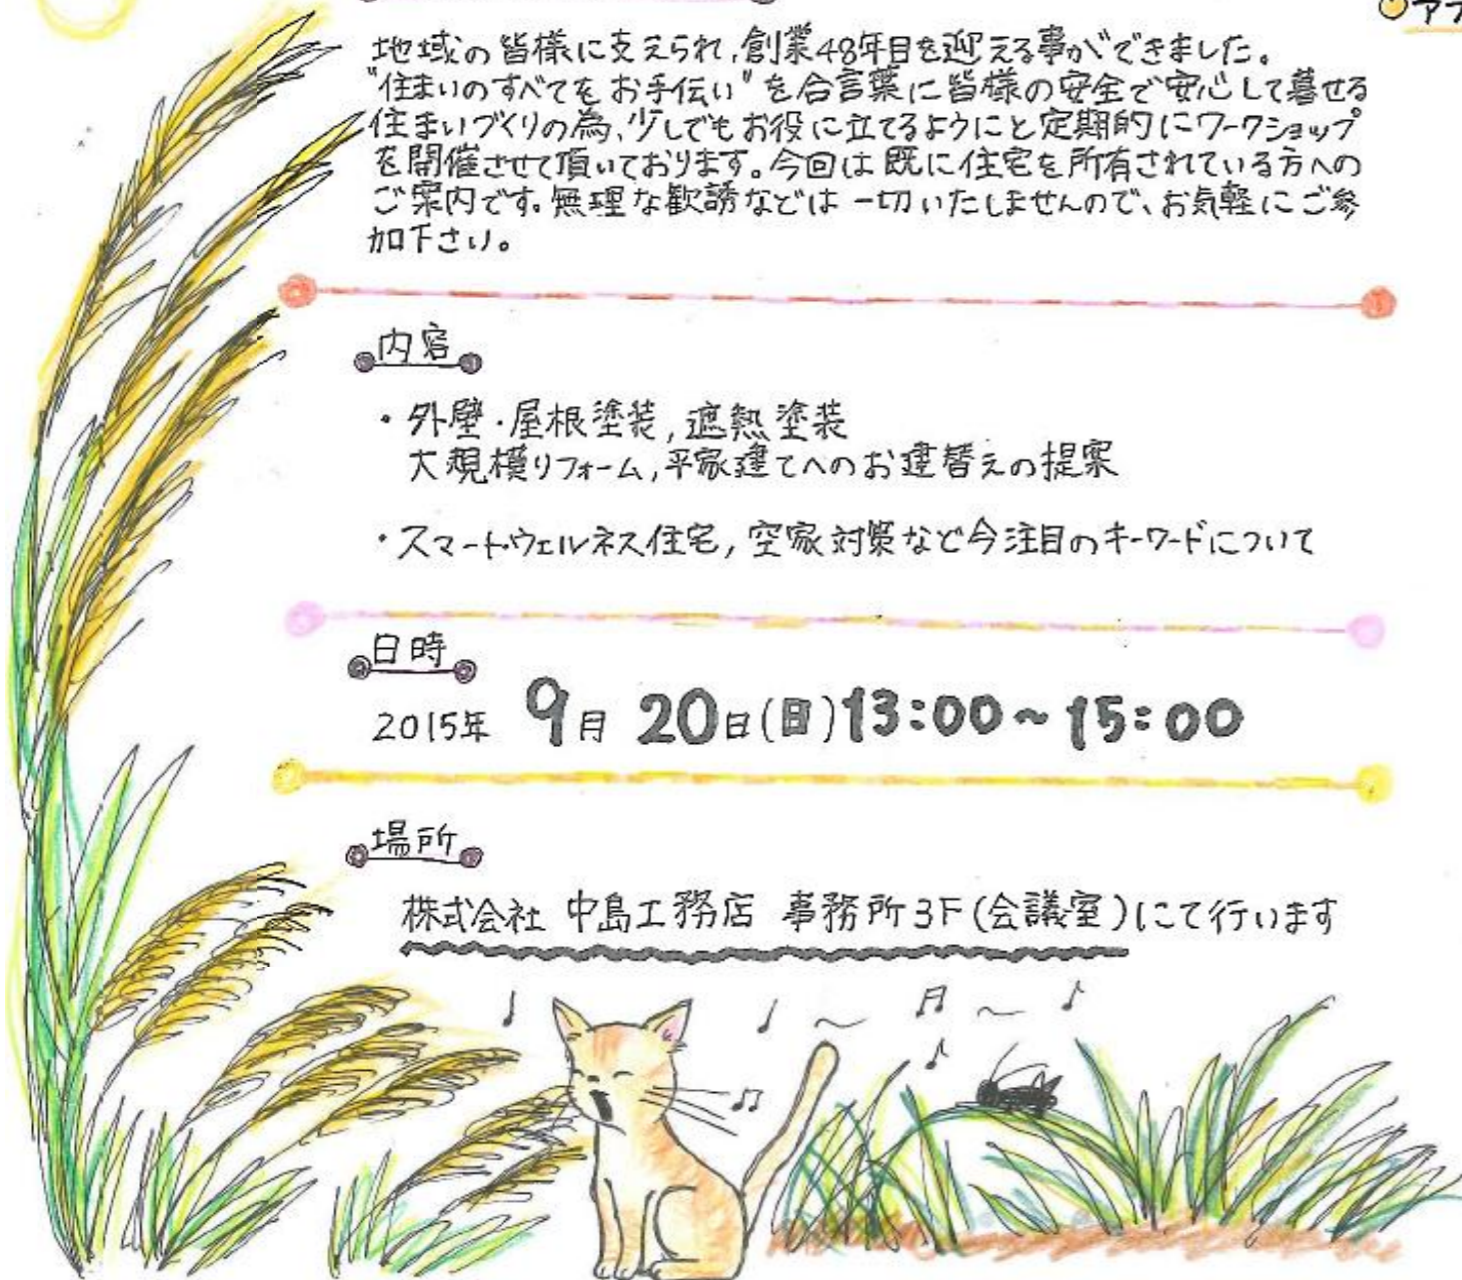 アフ
地域の皆様に支えられ,創業48年目を迎える事ができました。
"住まいのすべてを お手伝い"を合言葉に皆様の安全で安心して暮せる
住まいづくりの為、少しでもお役に立てるようにと定期的にワークショップ
を開催させて頂いております。今回は既に住宅を所有されている方への
ご案内です。無理な歓誘などは一切いたしませんので、お気軽にご参
加下さい。
内容
・外壁・屋根塗装,遮熱塗装
大規模リフォーム,平家建てへのお建替えの提案
・スマートウェルネス住宅,空家対策など今注目のキーワードについて
日時
2015年 9月 20日(日)13:00~15:00
場所
株式会社 中島工務店 事務所3F(会議室)にて行います